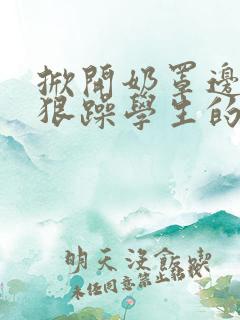 掀開奶罩邊
狠躁學生的
明天沒飯喫
未经同意禁止转载